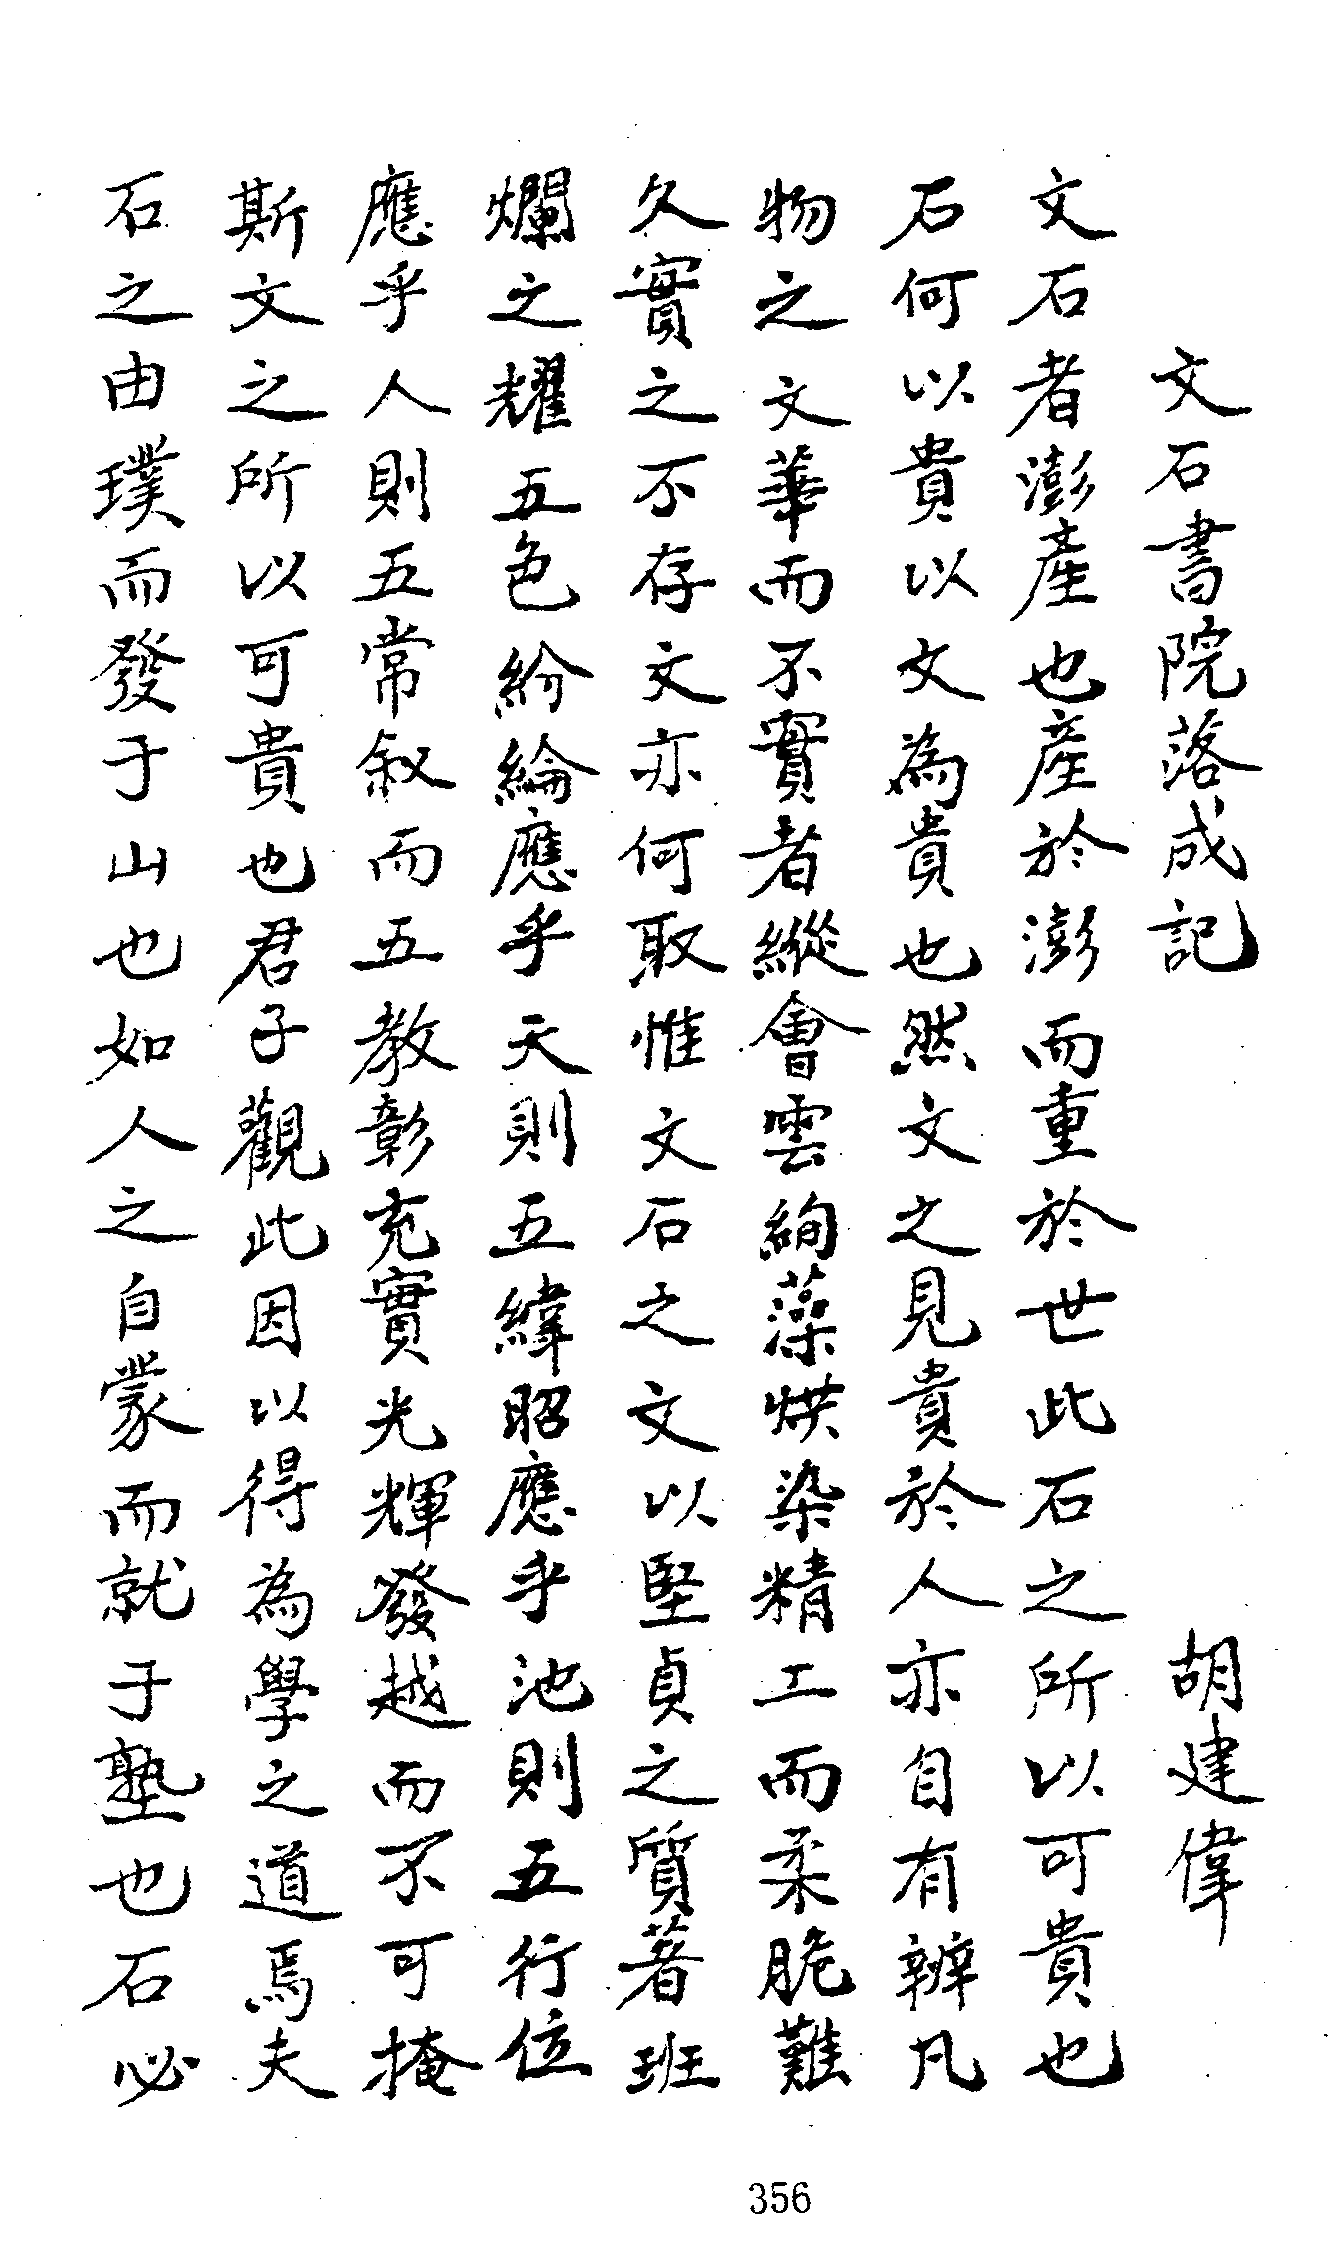 文石書院落成記 胡建偉
文石者澎產也產於澎而重於世此石之所以可貴也
石何以貴以文為貴也然文之見貴於人亦自有辨凡
物之文文華而不實者縱會雲絢藻烘染精工而柔脆難
久實之不存文亦何取惟文石之文以堅貞之質著班
爛之耀五色紛綸應乎天則五緯昭應乎池則五行位
應乎人則五常叙而五教彰充實光輝發越而不可掩
斯文之所以可貴也君子觀此因以得為學之道焉夫
石之由璞而發于山也如人之自蒙而就于塾也石必
356